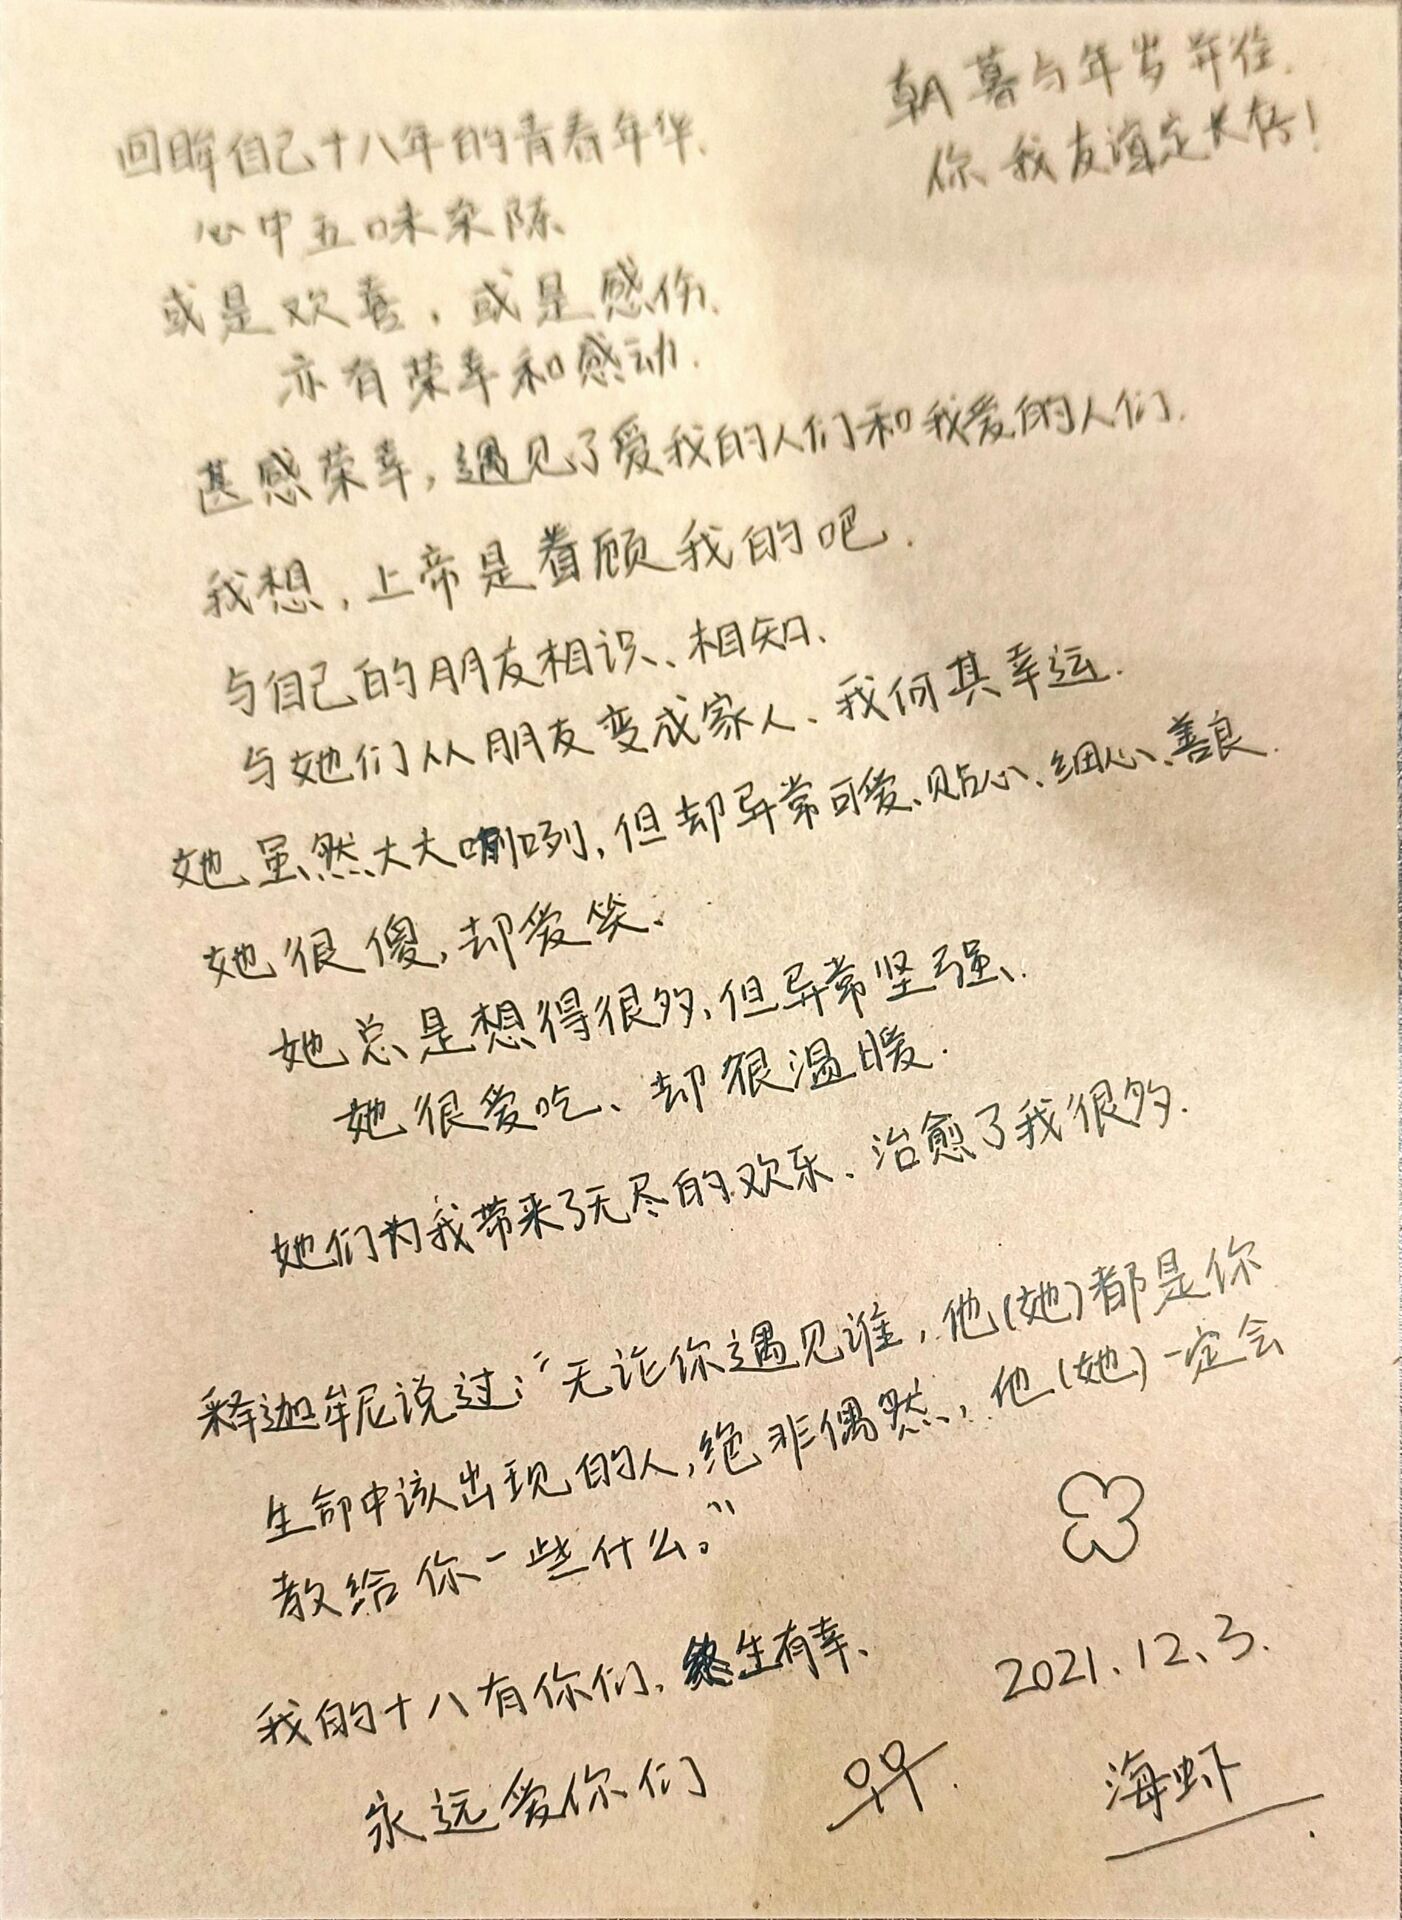 朝暮与年岁并往.
你我友谊定长存!
回眸自己十八年的青春年华.
心中五味杂陈、
或是欢喜,或是感伤.
亦有荣幸和感动.
甚感荣幸,遇见了爱我的人们和我爱的人们.
我想,上帝是眷顾我的吧.
与自己的朋友相识、相知、
与她们从朋友变成家人、我何其幸运.
她虽然大大咧咧,但却异常可爱、贴心、细心、善良.
她很傻,却爱笑、
她总是想得很多,但异常坚强、
她很爱吃、却很温暖.
她们为我带来了无尽的欢乐、治愈了我很多.
释迦牟尼说过:“无论你遇见谁,他(她)都是你
生命中该出现的人,绝非偶然,他(她)一定会
教给你一些什么。”
我的十八有你们,终生有幸、
2021.12.3.
永远爱你们
海虾